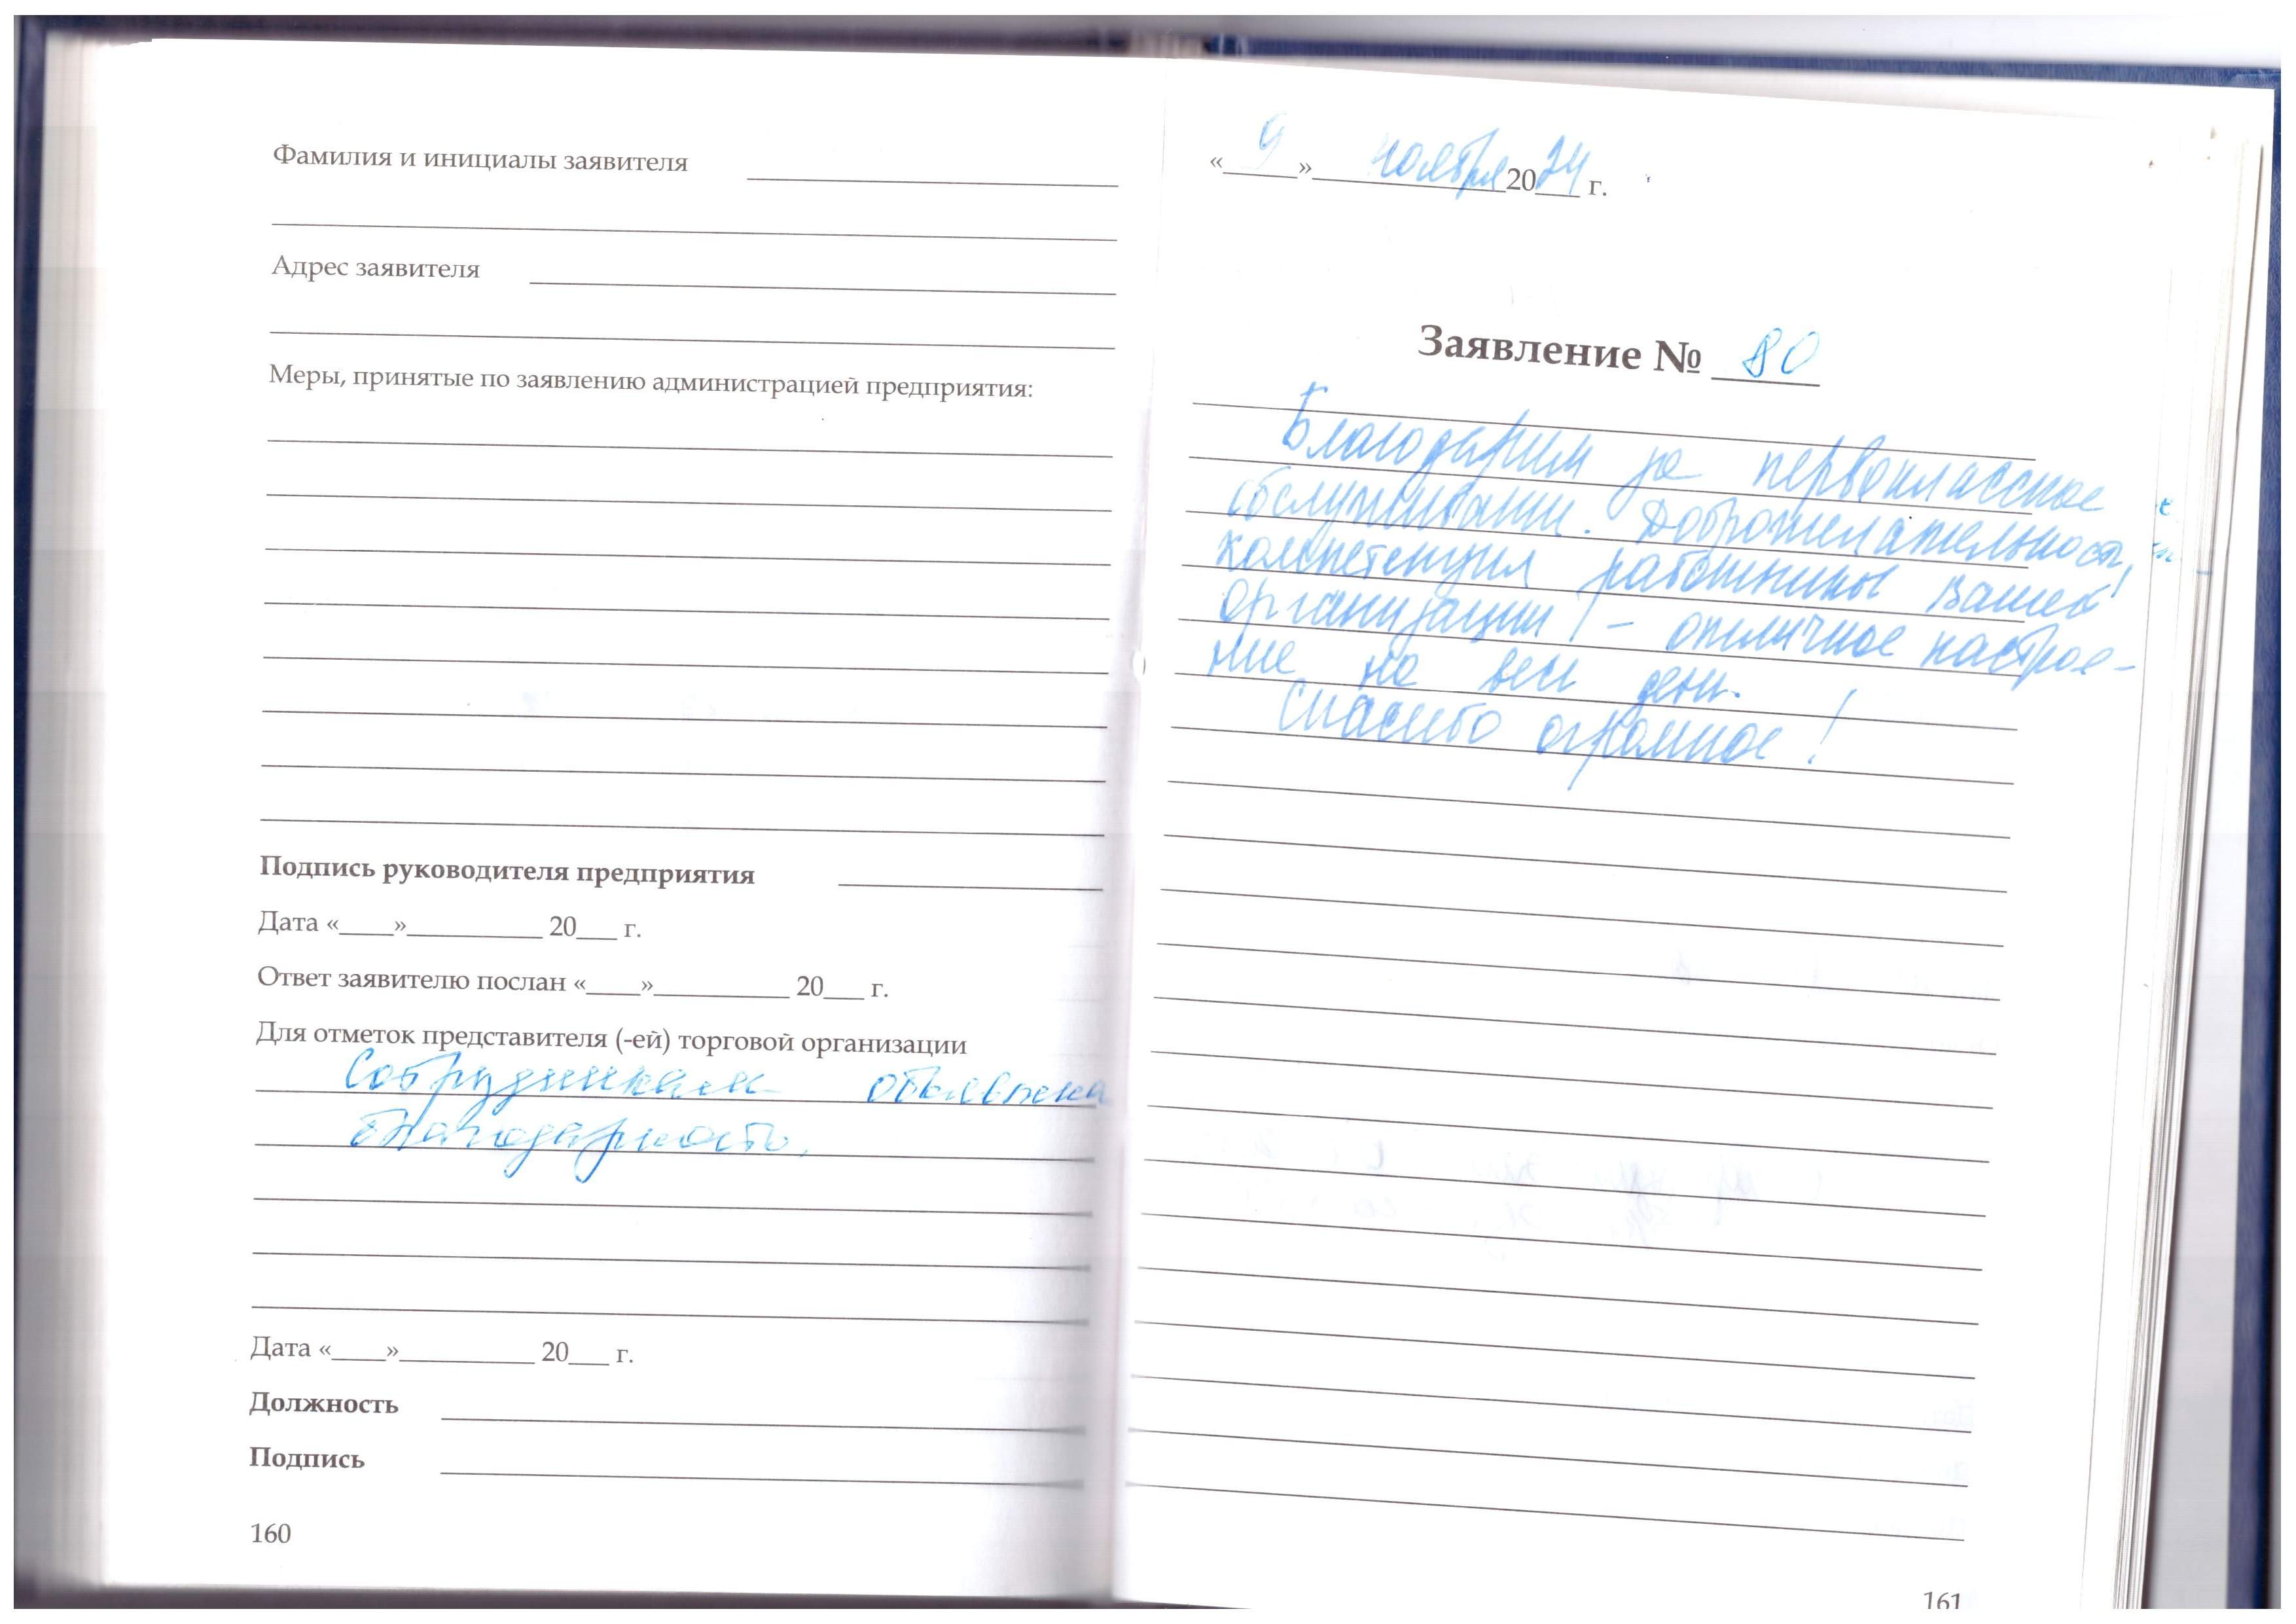 Фамилия и инициалы заявителя
Адрес заявителя
Меры, принятые по заявлению администрацией предприятия:
Подпись руководителя предприятия
Дата «____»__________ 20___ г.
Ответ заявителю послан «____»__________ 20___ г.
Для отметок представителя (-ей) торговой организации
Сотрудникам объявлена
благодарность.
Дата «____»__________ 20___ г.
Должность
Подпись
160
«9» ноября 2024 г.
Заявление № 80
Благодарим за первоклассное
обслуживание. Доброжелательность,
компетенция работников вашей
организации – отличное настрое-
ние на весь день.
Спасибо огромное!
161